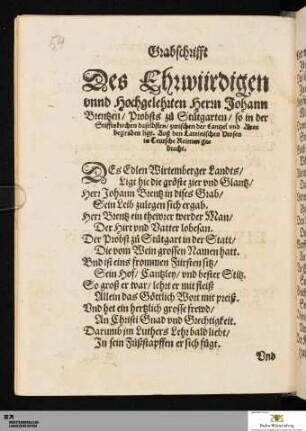 54
Grabschrifft
Des Ehrwürdigen
vnnd Hochgelehrten Herrn Johann
Brentzen / Probsts zů Stůtgarten / so in der
Stifftskirchen daselbsten / zwischen der Cantzel vnd Altar
begraben ligt. Auß den Lateinischen Versen
in Teutsche Reimen ge-
bracht.
DEs Edlen Wirtemberger Landts /
Ligt hie die gröste zier vnd Glantz /
Herr Johann Brentz in dises Grab /
Sein Leib zulegen sich ergab.
Herr Brentz ein thewrer werder Man /
Der Hirt vnd Vatter lobesan.
Der Probst zů Stůtgart in der Statt /
Die vom Wein grossen Namen hatt.
Vnd ist eins frommen Fürsten sitz /
Sein Hof / Cantzley / vnd bester Stitz.
So groß er war / lehrt er mit fleiß
Allein das Göttlich Wort mit preiß.
Vnd het ein hertzlich grosse frewd /
An Christi Gnad vnd Grechtigkeit.
Darumb jm Luthers Lehr bald liebt /
In sein Fůßstapffen er sich fügt.
Vnd
WÜRTTEMBERGISCHE
LANDESBIBLIOTHEK
Baden-Württemberg